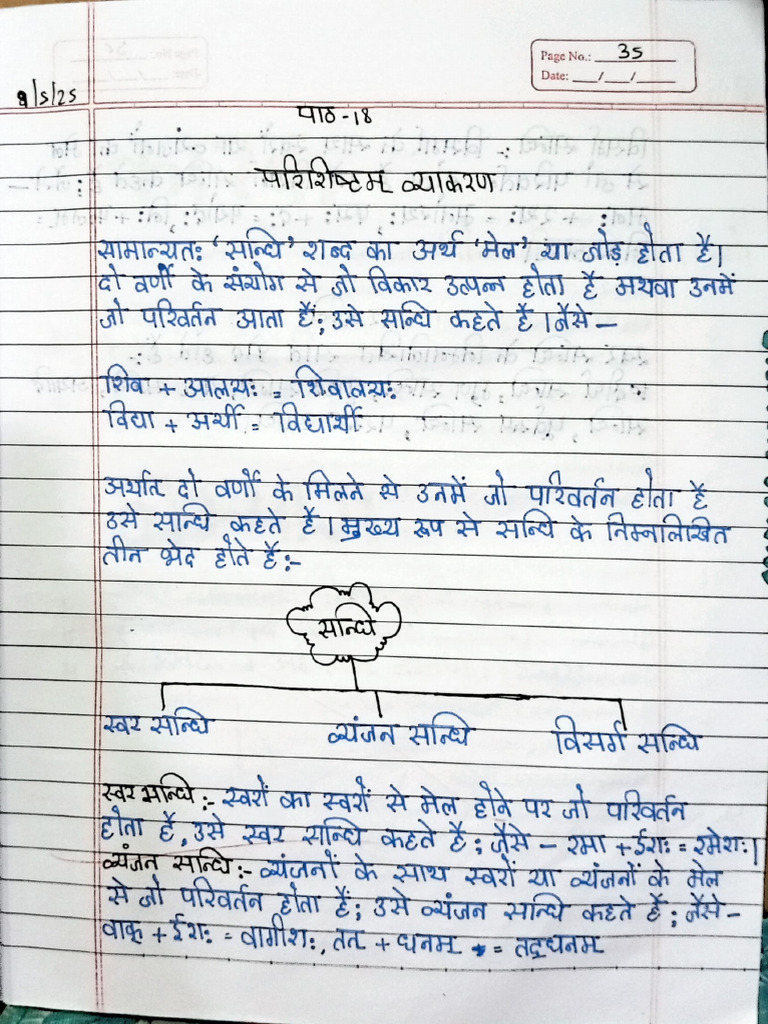 Page No.: 35
Date: __/__/__
9/5/25
पाठ-18
परिशिष्टम् व्याकरण
सामान्यतः 'सन्धि' शब्द का अर्थ 'मेल' या जोड़ होता है।
दो वर्णों के संयोग से जो विकार उत्पन्न होता है अथवा उनमें
जो परिवर्तन आता है; उसे सन्धि कहते है। जैसे –
शिव + आलयः = शिवालयः
विद्या + अर्थी = विद्यार्थी
अर्थात् दो वर्णों के मिलने से उनमें जो परिवर्तन होता है
उसे सन्धि कहते है। मुख्य रूप से सन्धि के निम्नलिखित
तीन भेद होते है:-
सन्धि
स्वर सन्धि व्यंजन सन्धि विसर्ग सन्धि
स्वर सन्धि :- स्वरों का स्वरों से मेल होने पर जो परिवर्तन
होता है, उसे स्वर सन्धि कहते है; जैसे – रमा + ईशः = रमेशः।
व्यंजन सन्धि :- व्यंजनों के साथ स्वरों या व्यंजनों के मेल
से जो परिवर्तन होता है; उसे व्यंजन सन्धि कहते है; जैसे –
वाक् + ईशः = वागीशः, तत् + धनम् = तद्धनम्